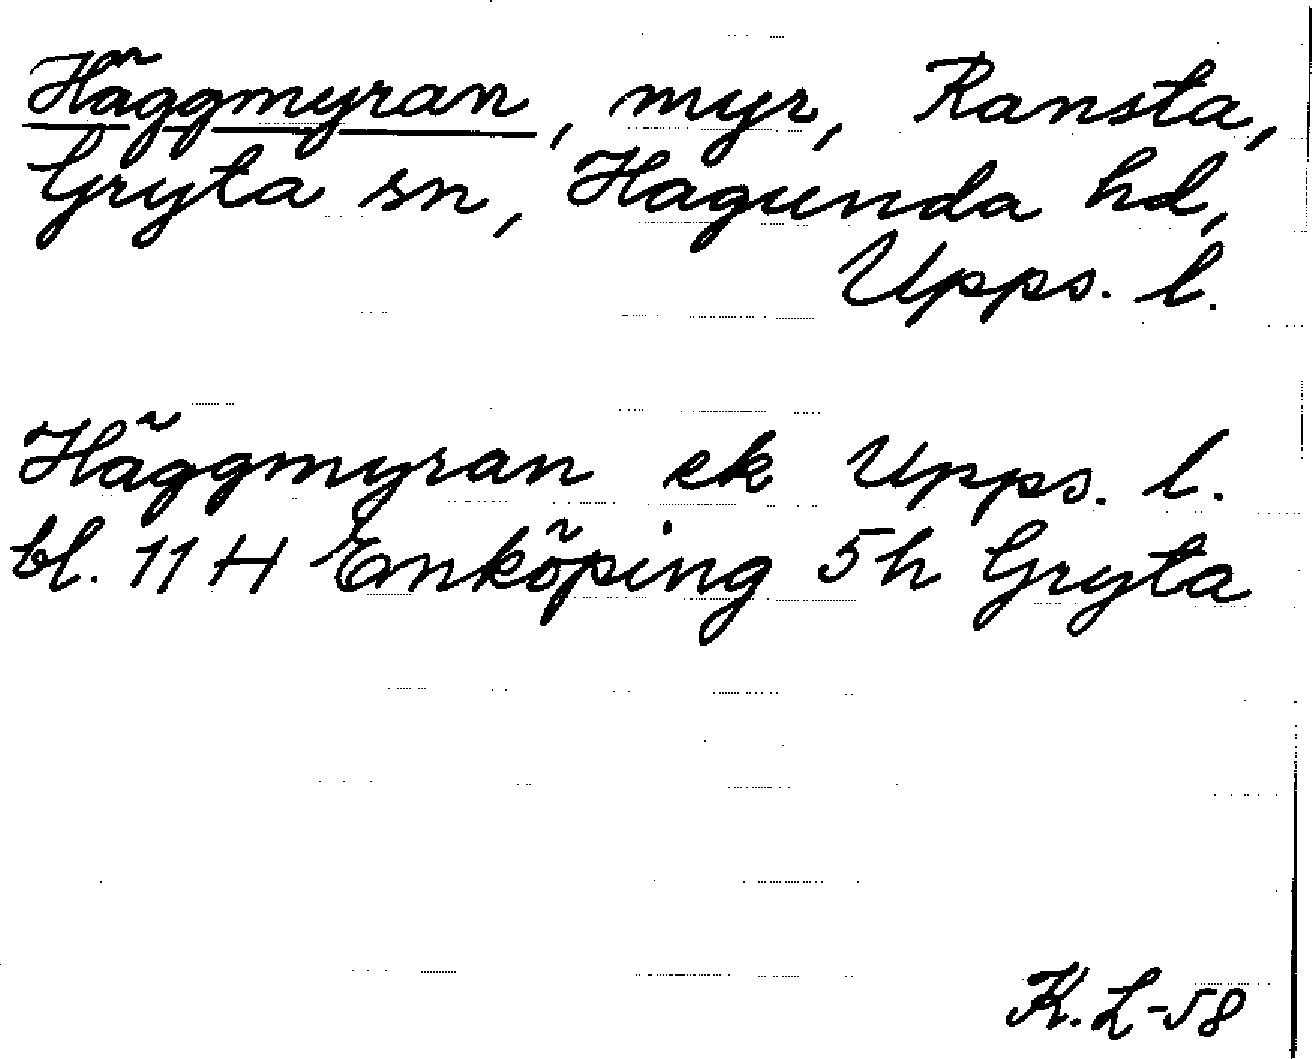 Häggmyran, myr, Ransta,
Gryta sn, Hagunda hd,
Upps. l.
Häggmyran ek Upps. l.
bl. 11 H Enköping 5h Gryta
K. L-58